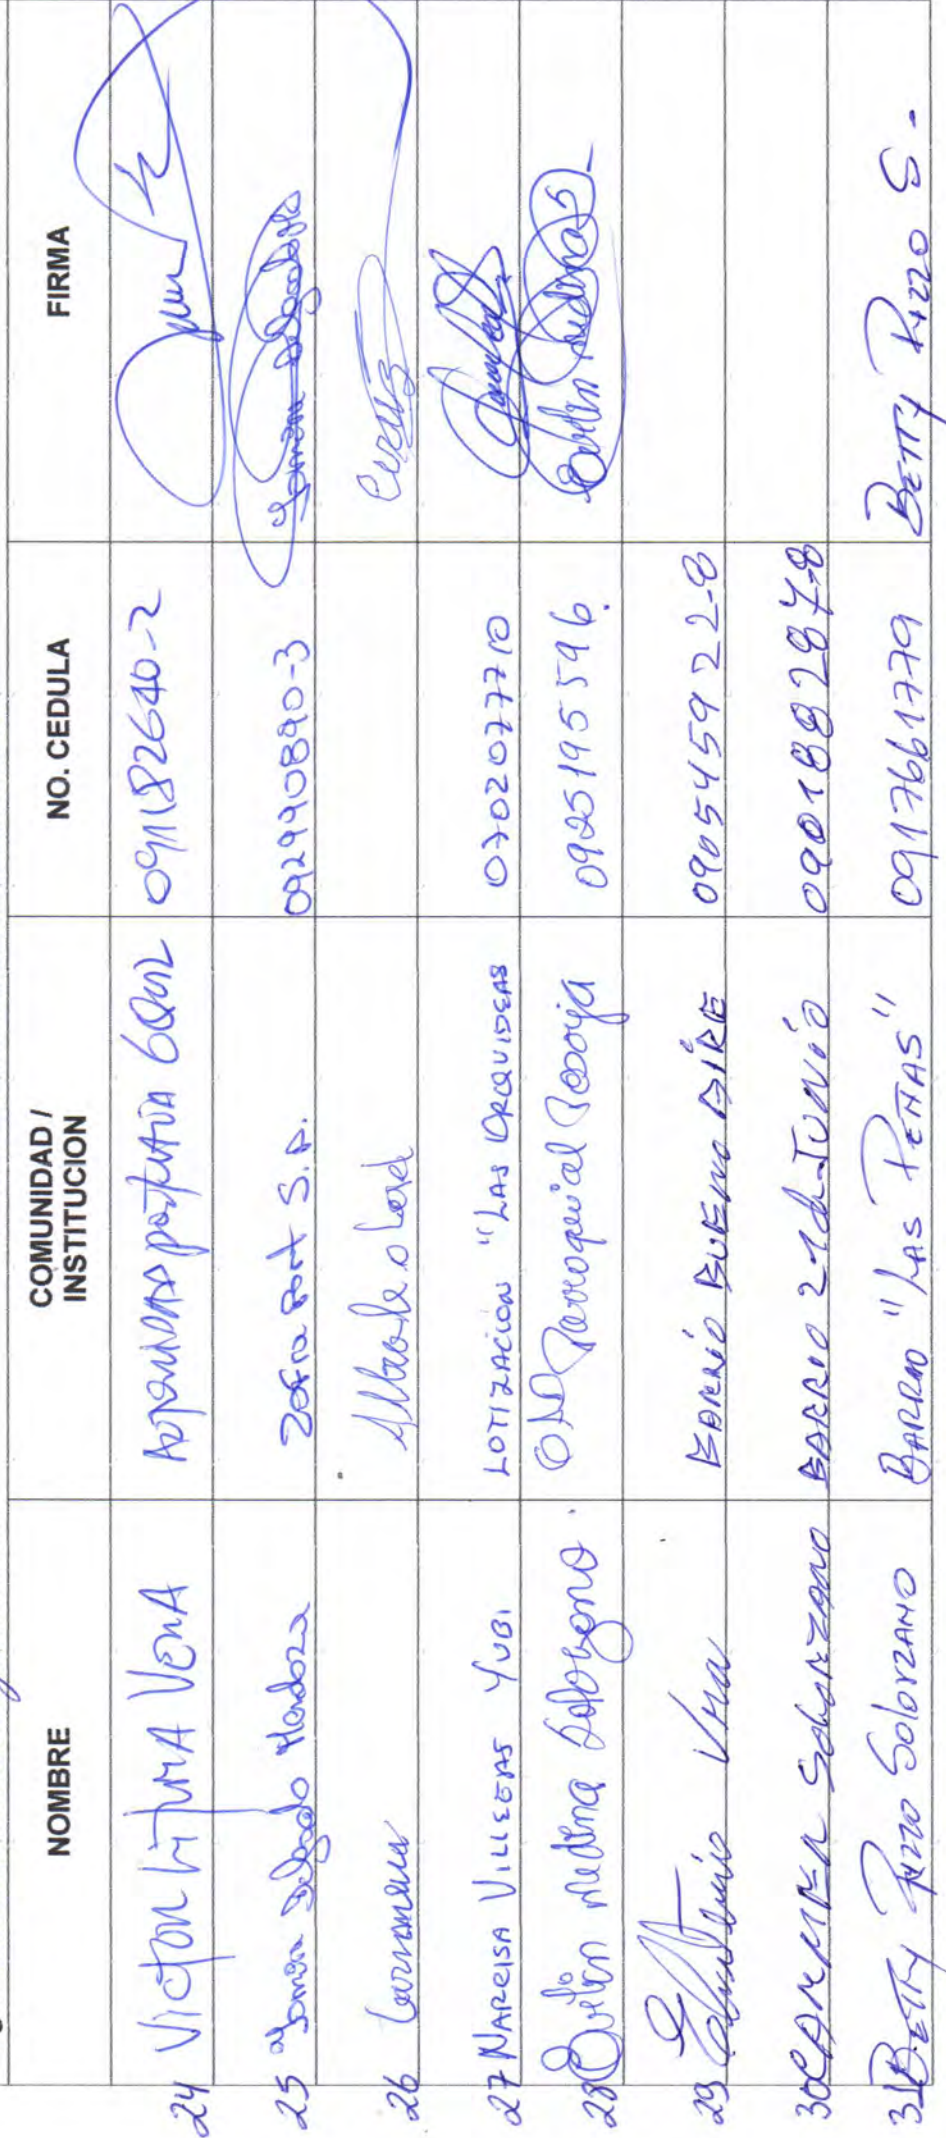 NOMBRE COMUNIDAD / INSTITUCION NO. CEDULA FIRMA
24 Victor Lituma Vera portuaria 091182640-2
25 Delgado Mendoza Zofra Port S.A. 092990890-3
26 Carmen
27 NARCISA VILLEGAS YUBI LOTIZACION "LAS ORQUIDEAS 0702077710
28 Evelin Medina Parroquial Posorja 0925195596. Evelin Medina
29 Vera BARRIO BUENO AIRE 090545922-8
30 CARMEN SOLORZANO BARRIO 21 de JUNIO 090188287-8
31 BETTY Rizzo Solorzano BARRIO "LAS PEÑAS" 0917661779 BETTY Rizzo S.